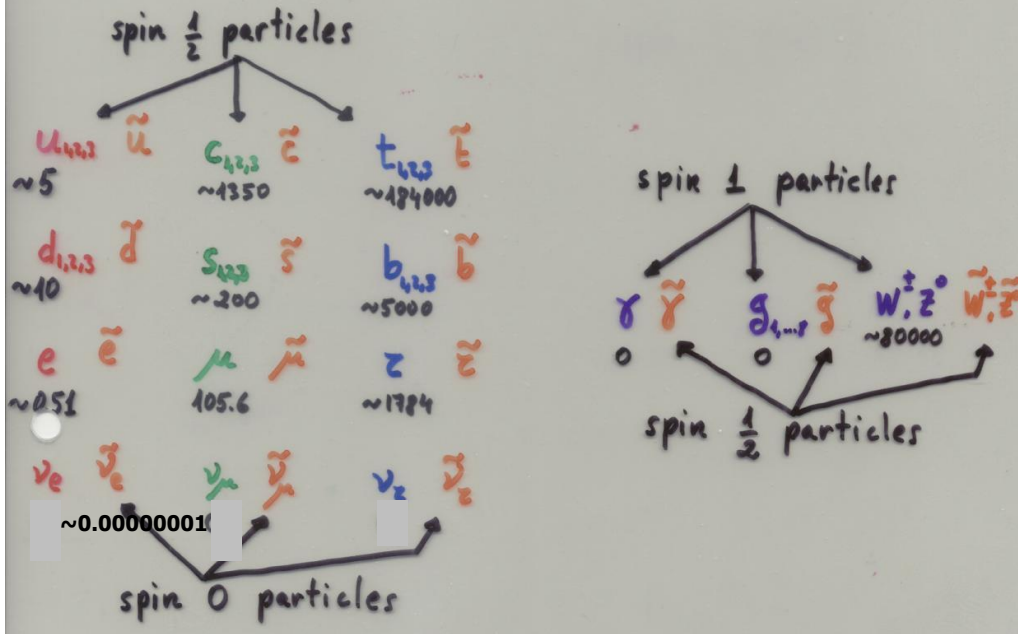 spin 1/2 particles
u1,2,3 ũ c1,2,3 c̃ t1,2,3 t̃
~5 ~1350 ~184000
d1,2,3 d̃ s1,2,3 s̃ b1,2,3 b̃
~10 ~200 ~5000
e ẽ μ μ̃ τ τ̃
~0.51 105.6 ~1784
νe ν̃e νμ ν̃μ ντ ν̃τ
~0.00000001
spin 0 particles
spin 1 particles
γ γ̃ g1,...8 g̃ W±, Z° W̃±, Z̃°
0 0 ~80000
spin 1/2 particles